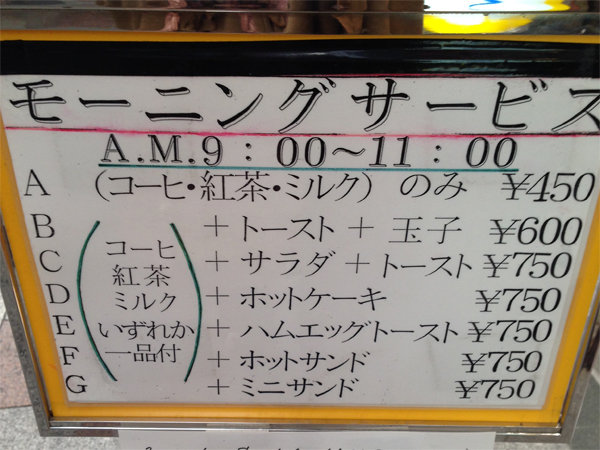 モーニングサービス
A.M.9：00～11：00
A （コーヒ・紅茶・ミルク）のみ ¥450
B ＋トースト＋玉子 ¥600
C ＋サラダ＋トースト ¥750
D ＋ホットケーキ ¥750
E ＋ハムエッグトースト ¥750
F ＋ホットサンド ¥750
G ＋ミニサンド ¥750
（コーヒ
紅茶
ミルク
いずれか
一品付）